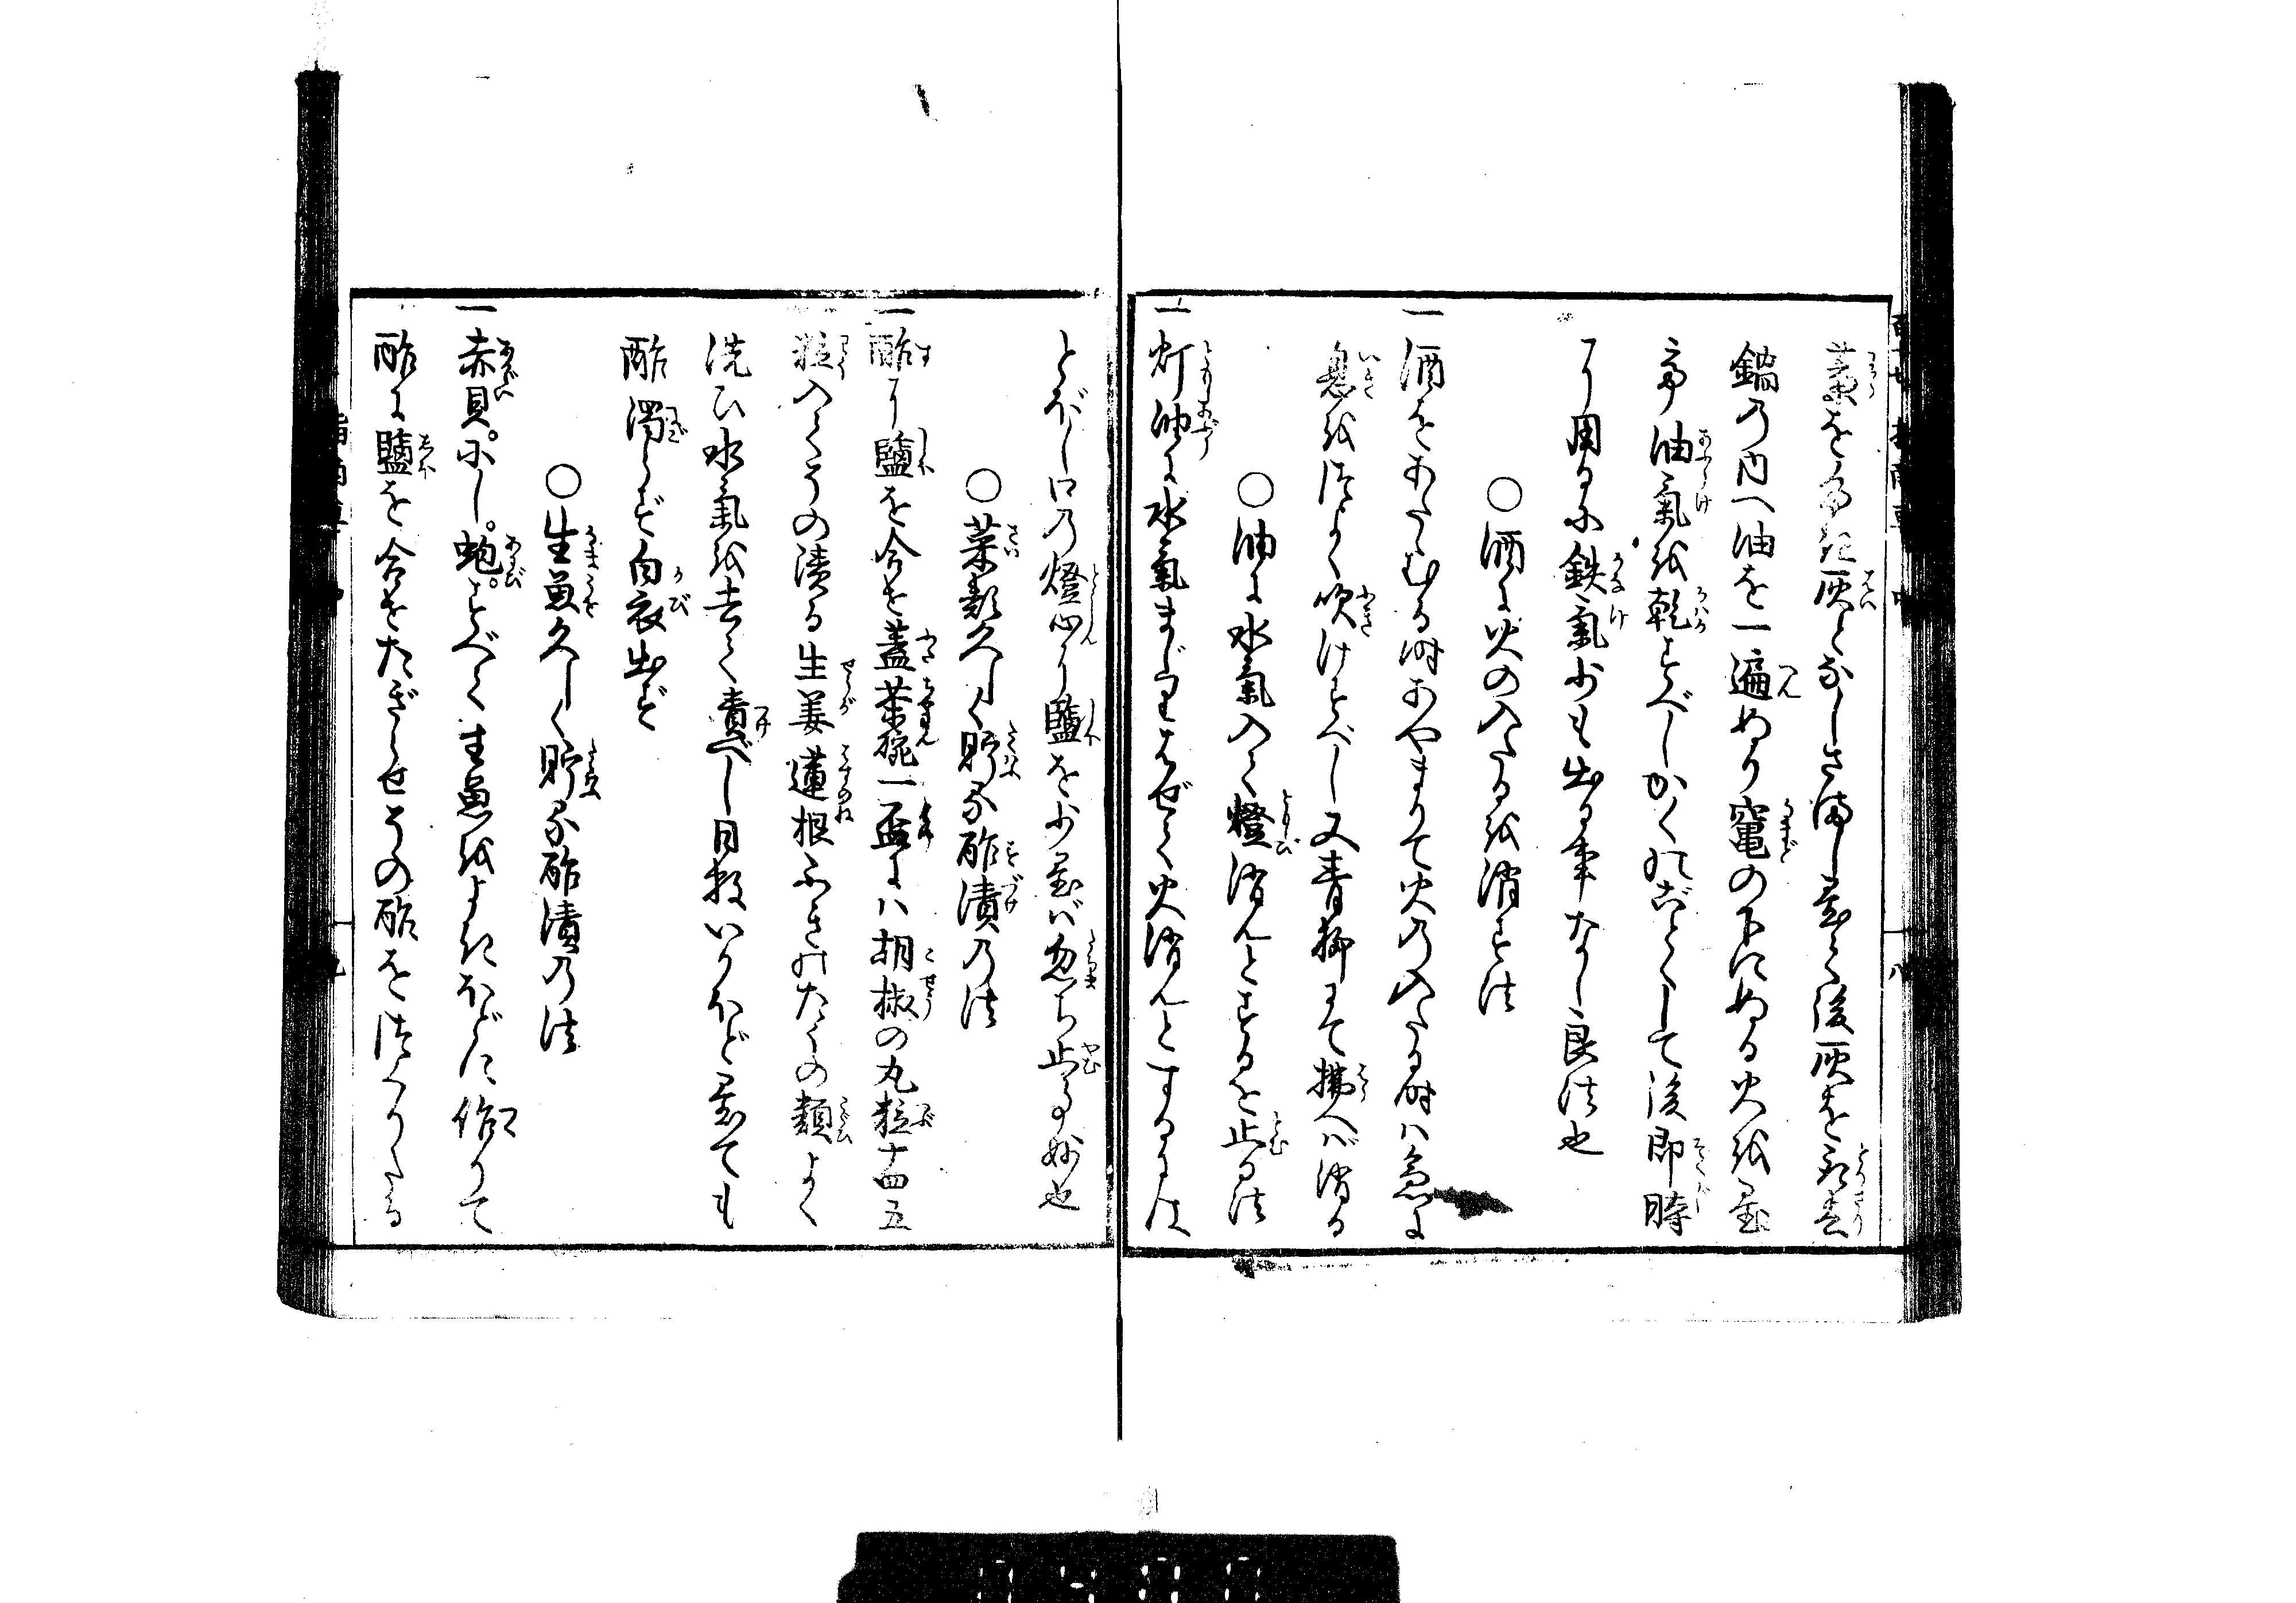 藁をたき灰となしさまし置て後灰を取去
鍋の内へ油を一遍ぬり竈の下にぬる火を置
て油氣を乾すべしかくのごとくして後即時
に用るに鉄氣少も出る事なし良法也
○酒に火の入たるを消す法
一酒をあたゝむる時あやまりて火の入たる時ハ急に
息をつよく吹けすべし又青柳にて揚へバ消る
○油に水氣入て燈消んとするを止る法
一灯油に水氣まじりはぜて火消んとするには
とぼし口の燈心に鹽を少し置バ忽ち止る事妙也
○菜類久しく貯る酢漬の法
一酢に鹽を合せ蓋茶碗一盃にハ胡椒の丸粒十四五
粒入てその漬る生姜蓮根ふきのたうの類よく
洗ひ水氣を去て漬べし日数いかほど置ても
酢濁らず白衣出ず
○生魚久しく貯る酢漬の法
一赤貝。にし。蚫。すべて生魚をよきほどに作りて
酢に鹽を合せたぎらせその酢をつくりたる